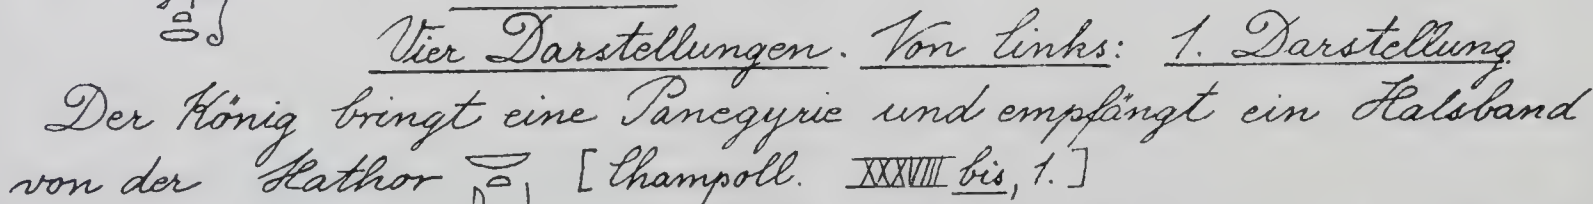 Vier Darstellungen. Von links: 1. Darstellung.
Der König bringt eine Panegyrie und empfängt ein Halsband
von der Hathor [Champoll. XXXVIII bis, 1.]